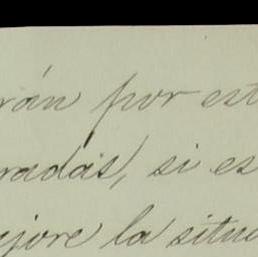 rán por est
radas, si es
ejore la situ